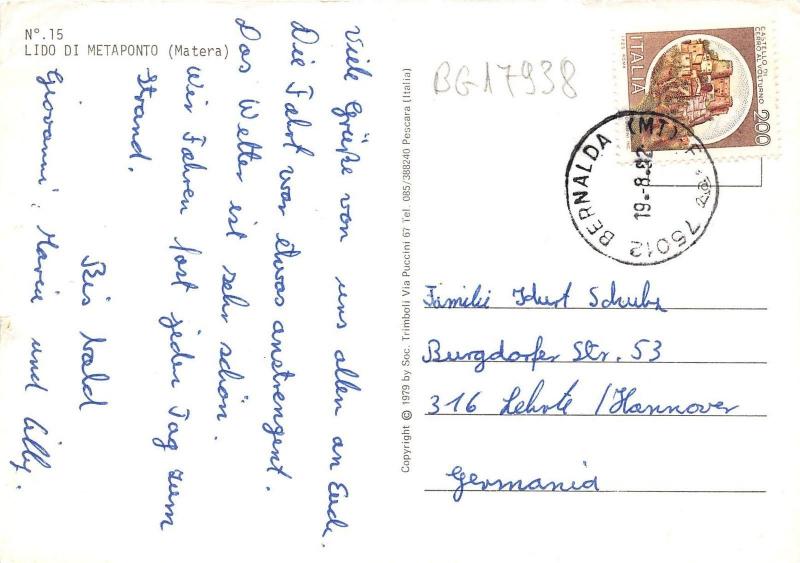 N°.15
LIDO DI METAPONTO (Matera)
Viele Grüße von uns allen an Euch.
Die Fahrt war etwas anstrengent.
Das Wetter ist sehr schön.
Wir Fahren fast jeden Tag zum
Strand.
Bis bald
Giovanni, Maria und Cilly.
Copyright © 1979 by Soc. Trimboli Via Puccini 67 Tel. 085/388240 Pescara (Italia)
BG17938
ITALIA
CASTELLO DI
CERRO AL VOLTURNO
200
75012 BERNALDA (MT)
19.-8.82
Familie Schulz
Burgdorfer Str. 53
316 Lehrte /Hannover
Germania